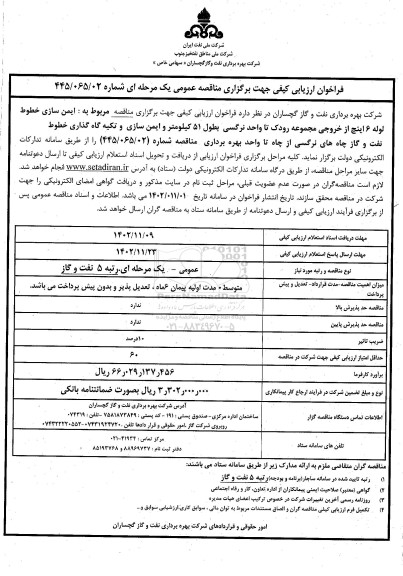 شرکت ملی نفت ایران
شرکت ملی مناطق نفتخیز جنوب
شرکت بهره برداری نفت و گاز گچساران « سهامی خاص »
فراخوان ارزیابی کیفی جهت برگزاری مناقصه عمومی یک مرحله ای شماره ۴۴۵/۰۶۵/۰۲
شرکت بهره برداری نفت و گاز گچساران در نظر دارد فراخوان ارزیابی کیفی جهت برگزاری مناقصه مربوط به : ایمن سازی خطوط
لوله ۶ اینچ از خروجی مجموعه رودک تا واحد نرگسی بطول ۵۱ کیلومتر و ایمن سازی و تکیه گاه گذاری خطوط
نفت و گاز چاه های نرگسی از چاه تا واحد بهره برداری مناقصه شماره (۴۴۵/۰۶۵/۰۲) را از طریق سامانه تدارکات
الکترونیکی دولت برگزار نماید. کلیه مراحل برگزاری فراخوان ارزیابی از دریافت و تحویل اسناد استعلام ارزیابی کیفی تا ارسال دعوتنامه
جهت سایر مراحل مناقصه، از طریق درگاه سامانه تدارکات الکترونیکی دولت (ستاد) به آدرس www.setadiran.ir انجام خواهد شد.
لازم است مناقصه‌گران در صورت عدم عضویت قبلی، مراحل ثبت نام در سایت مذکور و دریافت گواهی امضای الکترونیکی را جهت
شرکت در مناقصه محقق سازند. تاریخ انتشار فراخوان در سامانه تاریخ ۱۴۰۲/۰۱۱/۰۱ می باشد. اطلاعات و اسناد مناقصه عمومی پس
از برگزاری فرآیند ارزیابی کیفی و ارسال دعوتنامه از طریق سامانه ستاد به مناقصه گران ارسال خواهد شد.
مهلت دریافت اسناد استعلام ارزیابی کیفی ۱۴۰۲/۱۱/۰۹
مهلت ارسال پاسخ استعلام ارزیابی کیفی ۱۴۰۲/۱۱/۲۳
نوع مناقصه و رتبه مورد نیاز عمومی - یک مرحله ای-رتبه ۵ نفت و گاز
میزان اهمیت مناقصه-مدت قرارداد- تعدیل و پیش پرداخت متوسط- مدت اولیه پیمان ۶ماه ، تعدیل پذیر و بدون پیش پرداخت می باشد.
مناقصه حد پذیرش بالا ندارد
مناقصه حد پذیرش پایین ندارد
ضریب تاثیر ۱۰درصد
حداقل امتیاز ارزیابی کیفی جهت شرکت در مناقصه ۶۰
برآورد کارفرما ۶۶,۰۲۹,۱۳۷,۴۵۶ ریال
نوع و مبلغ تضمین شرکت در فرآیند ارجاع کار پیمانکاری ۳,۳۰۲,۰۰۰,۰۰۰ ریال بصورت ضمانتنامه بانکی
اطلاعات تماس دستگاه مناقصه گزار
آدرس شرکت بهره برداری نفت و گاز گچساران
تلفن های سامانه ستاد
مرکز تماس: ۴۱۹۳۴-۰۲۱
دفتر ثبت نام : ۸۸۹۶۹۷۳۷ و ۸۵۱۹۳۷۶۸
مناقصه گران متقاضی ملزم به ارائه مدارک زیر از طریق سامانه ستاد می باشند:
۱) رتبه تایید شده در سامانه ساجار(برنامه و بودجه)رتبه ۵ نفت و گاز
۲) گواهی (معتبر) صلاحیت ایمنی پیمانکاران از اداره تعاون، کار و رفاه اجتماعی
۳) روزنامه رسمی آخرین تغییرات شرکت در خصوص ترکیب اعضای هیات مدیره
۴) تکمیل فرم ارزیابی کیفی مناقصه گران و الصاق مستندات مربوط به توان مالی ، سوابق کاری،ارزشیابی سوابق و...
امور حقوقی و قراردادهای شرکت بهره برداری نفت و گاز گچساران